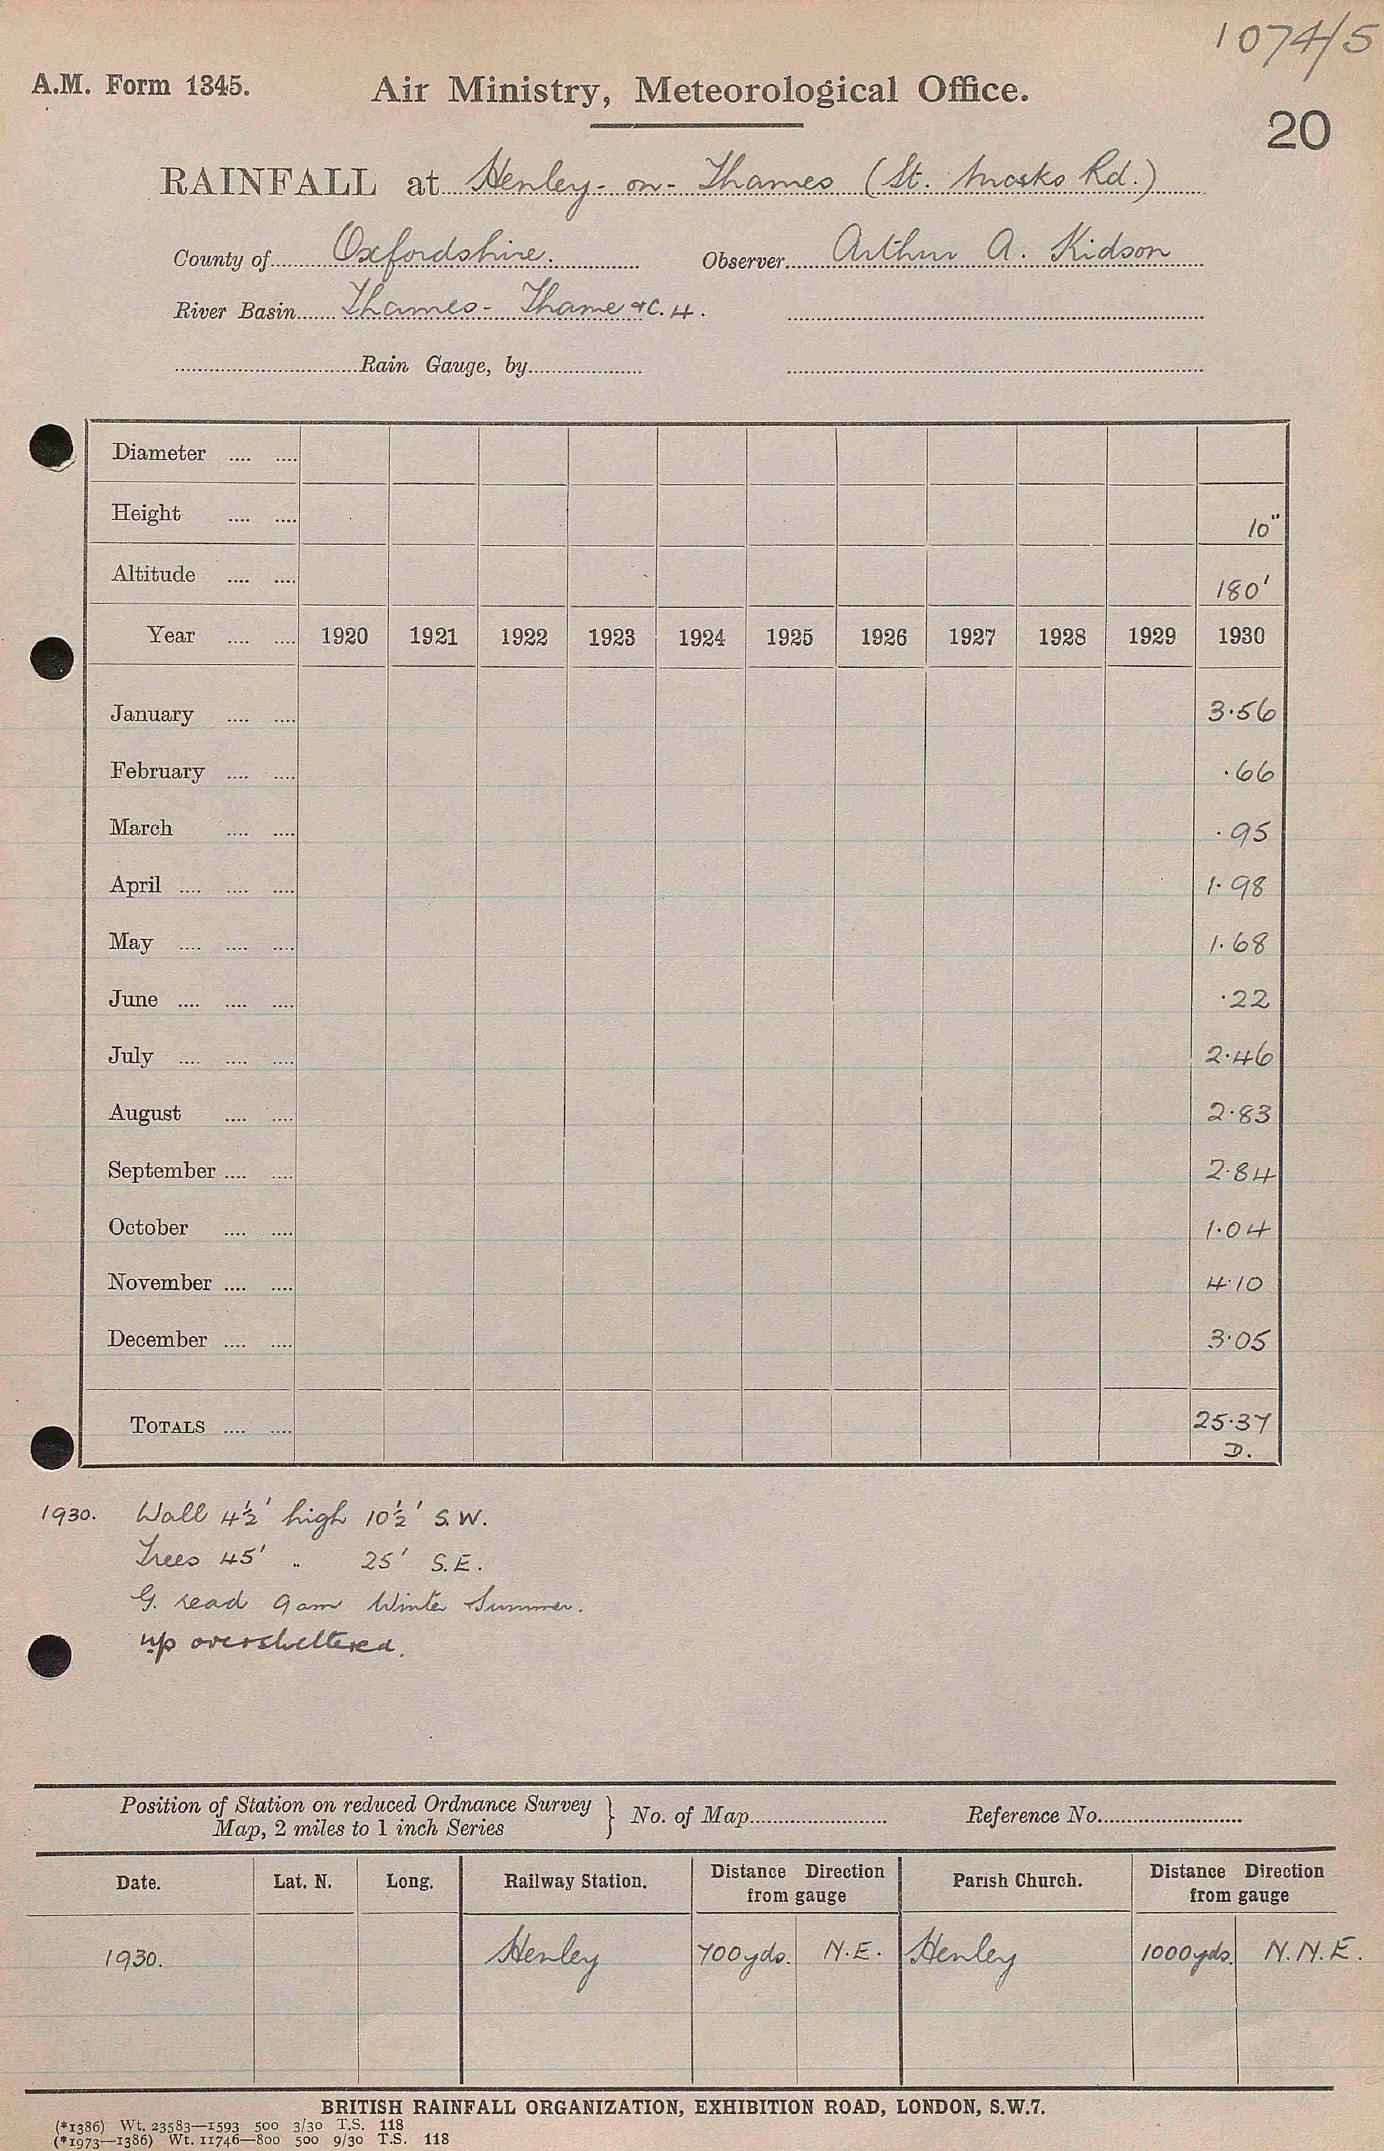 1074/5
A.M. Form 1345. Air Ministry, Meteorological Office.
20
RAINFALL at Henley-on-Thames (St. Marks Rd.)
County of Oxfordshire. Observer Arthur A. Kidson
River Basin Thames - Thame &c. 4.
Rain Gauge, by
Diameter .... ....
Height .... .... 10"
Altitude .... .... 180'
Year .... .... 1920 1921 1922 1923 1924 1925 1926 1927 1928 1929 1930
January .... .... 3.56
February .... .... .66
March .... .... .95
April .... .... .... 1.98
May .... .... .... 1.68
June .... .... .... .22
July .... .... .... 2.46
August .... .... 2.83
September .... .... 2.84
October .... .... 1.04
November .... .... 4.10
December .... .... 3.05
TOTALS .... .... 25.37
D.
1930. Wall 4½' high 10½' S.W.
Trees 45' " 25' S.E.
G. read 9am Winter Summer.
up oversheltered.
Position of Station on reduced Ordnance Survey
Map, 2 miles to 1 inch Series } No. of Map Reference No.
Date. Lat. N. Long. Railway Station. Distance Direction from gauge Parish Church. Distance Direction from gauge
1930. Henley 700yds. N.E. Henley 1000yds. N.N.E.
BRITISH RAINFALL ORGANIZATION, EXHIBITION ROAD, LONDON, S.W.7.
(*1386) Wt. 23583—1593 500 3/30 T.S. 118
(*1973—1386) Wt. 11746—800 500 9/30 T.S. 118